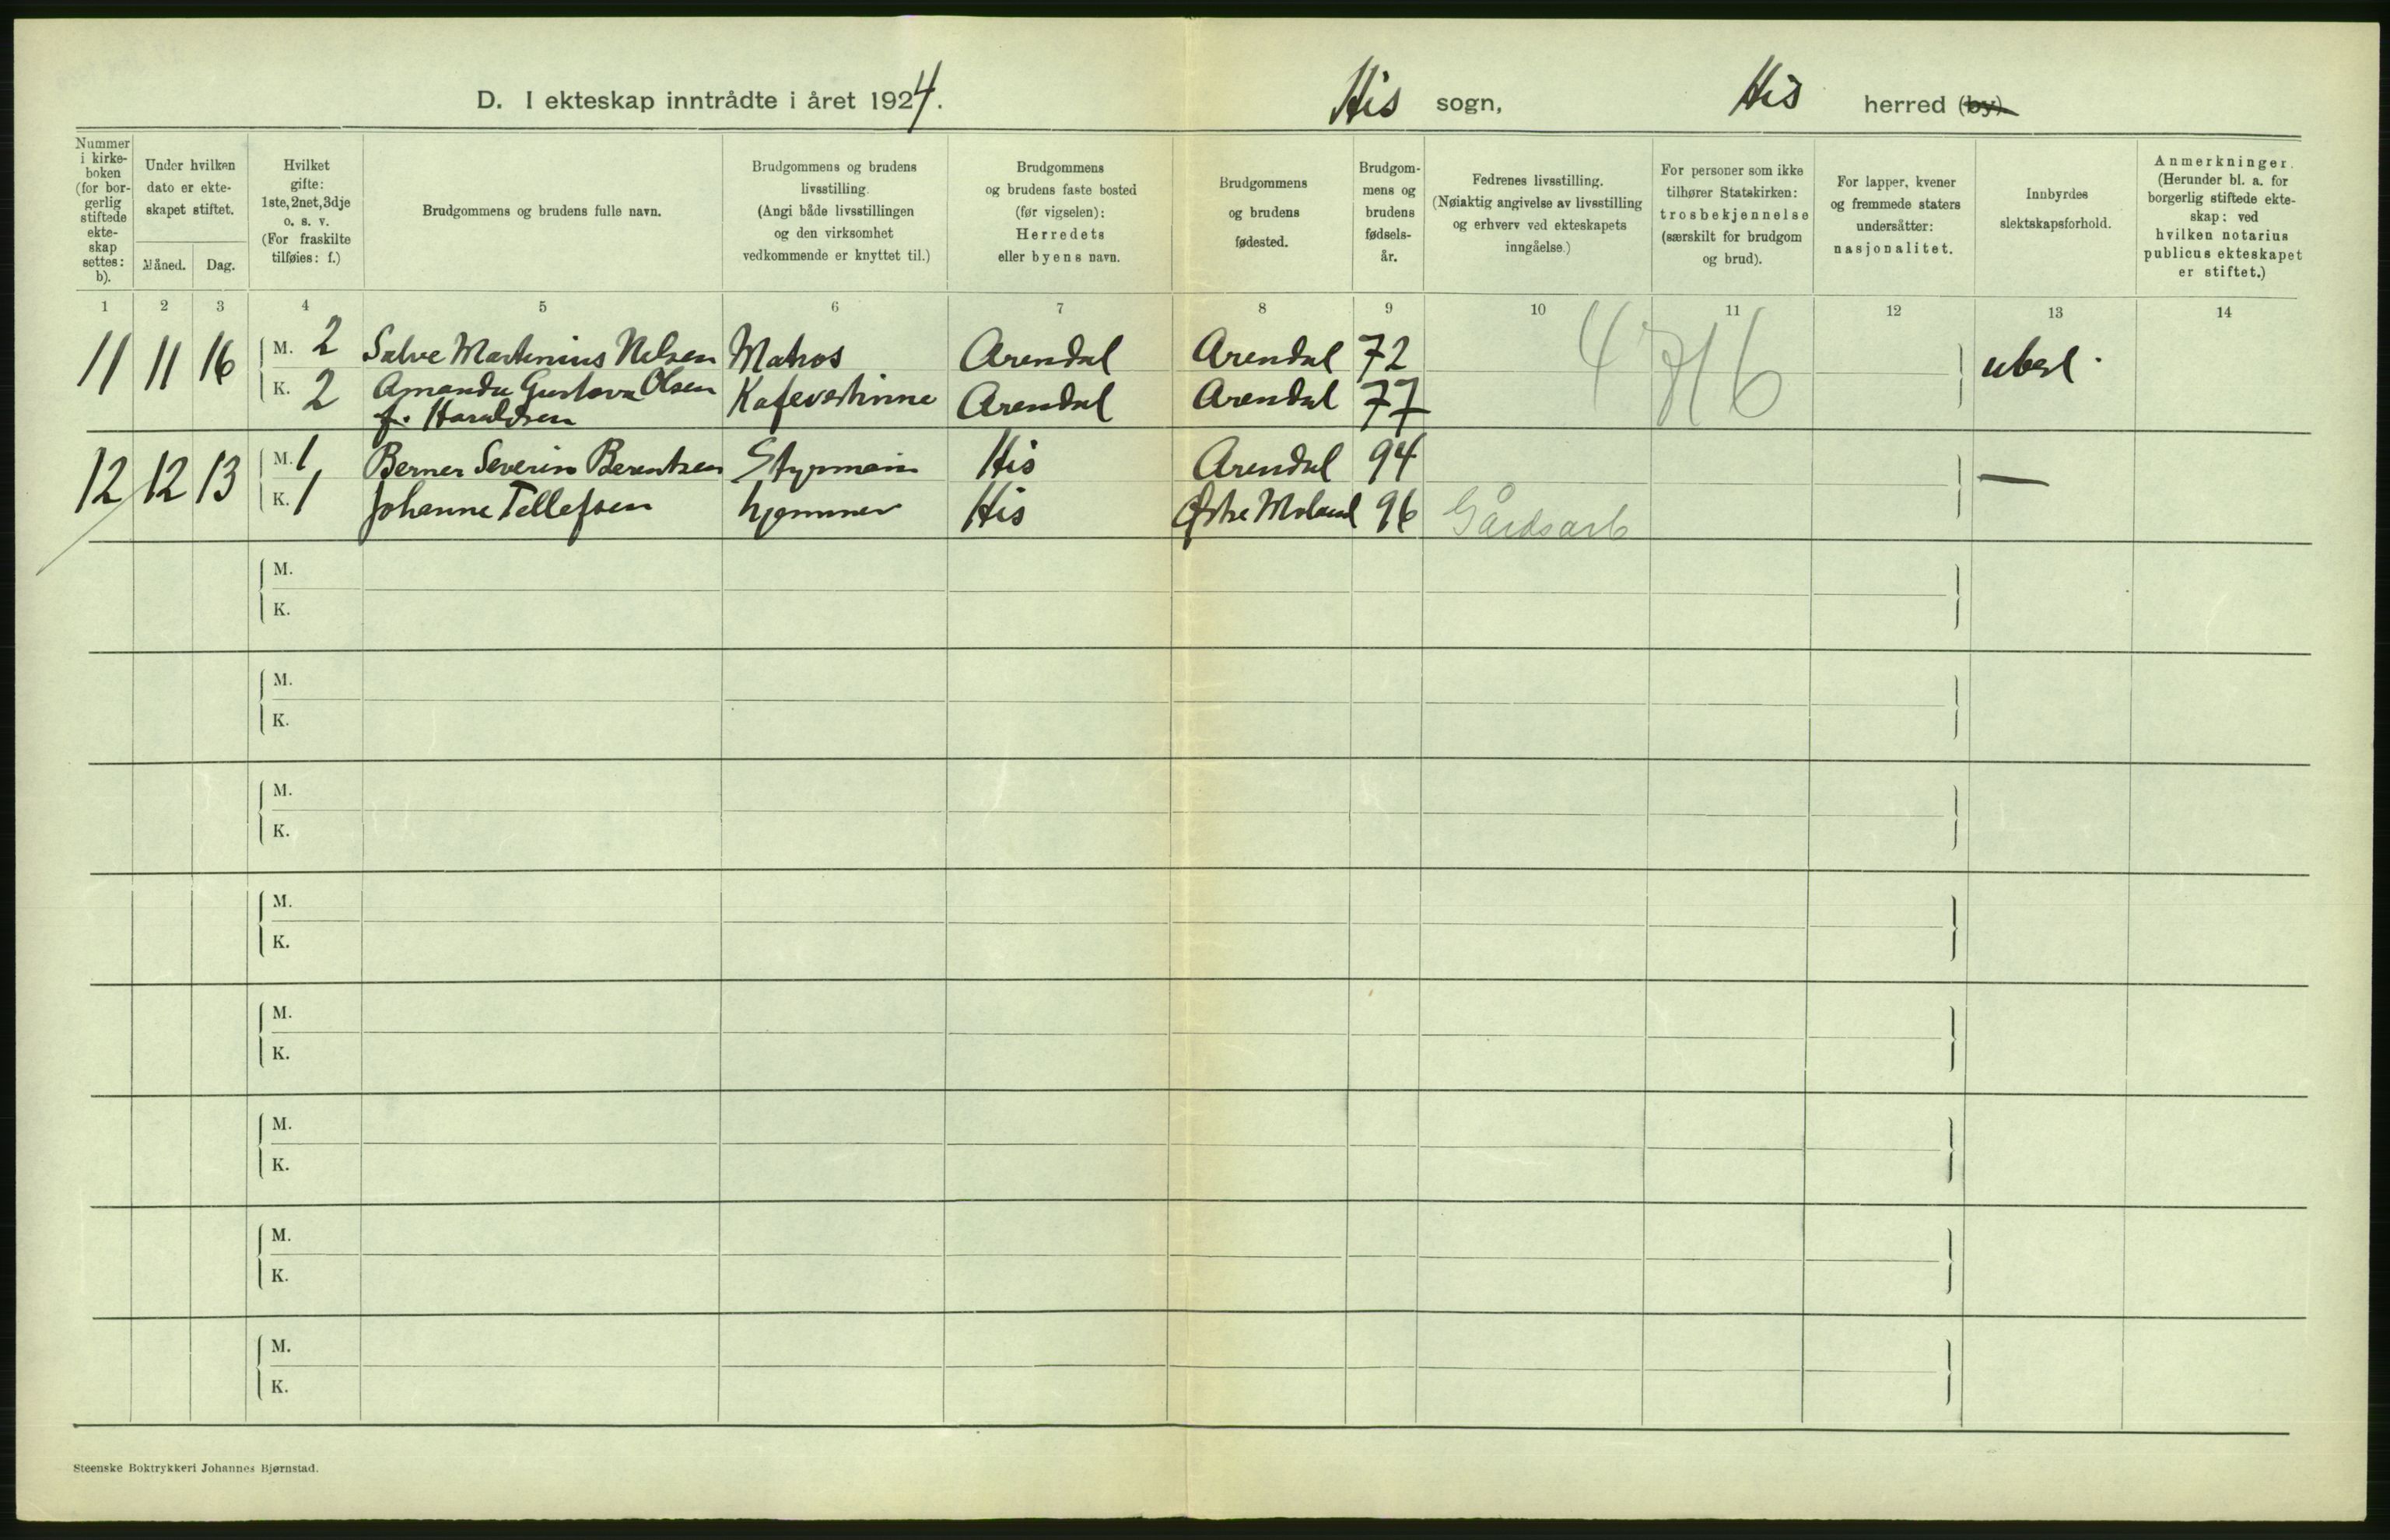 D. I ekteskap inntrådte i året 1924. His sogn, His herred (by).
Nummer i kirkeboken (for borgerlig stiftede ekteskap settes: b).
Under hvilken dato er ekteskapet stiftet.
Måned. Dag.
Hvilket gifte: 1ste, 2net, 3dje o. s. v. (For fraskilte tilføies: f.)
Brudgommens og brudens fulle navn.
Brudgommens og brudens livsstilling. (Angi både livsstillingen og den virksomhet vedkommende er knyttet til.)
Brudgommens og brudens faste bosted (før vigselen): Herredets eller byens navn.
Brudgommens og brudens fødested.
Brudgommens og brudens fødselsår.
Fedrenes livsstilling. (Nøiaktig angivelse av livsstilling og erhverv ved ekteskapets inngåelse.)
For personer som ikke tilhører Statskirken: trosbekjennelse (særskilt for brudgom og brud).
For lapper, kvener og fremmede staters undersåtter: nasjonalitet.
Innbyrdes slektskapsforhold.
Anmerkninger. (Herunder bl. a. for borgerlig stiftede ekteskap: ved hvilken notarius publicus ekteskapet er stiftet.)
1 2 3 4 5 6 7 8 9 10 11 12 13 14
11 11 16 M. 2 Salve Martinius Nilsen Matros Arendal Arendal 72 ubesl.
K. 2 Amanda Gustava Olsen Kafevertinne Arendal Arendal 77
f. Haraldsen
4716
12 12 13 M. 1 Berner Severin Berentsen Styrmann His Arendal 94 —
K. 1 Johanne Tellefsen hjemme His Østre Moland 96 Gårdsarb
M.
K.
M.
K.
M.
K.
M.
K.
M.
K.
M.
K.
M.
K.
M.
K.
Steenske Boktrykkeri Johannes Bjørnstad.